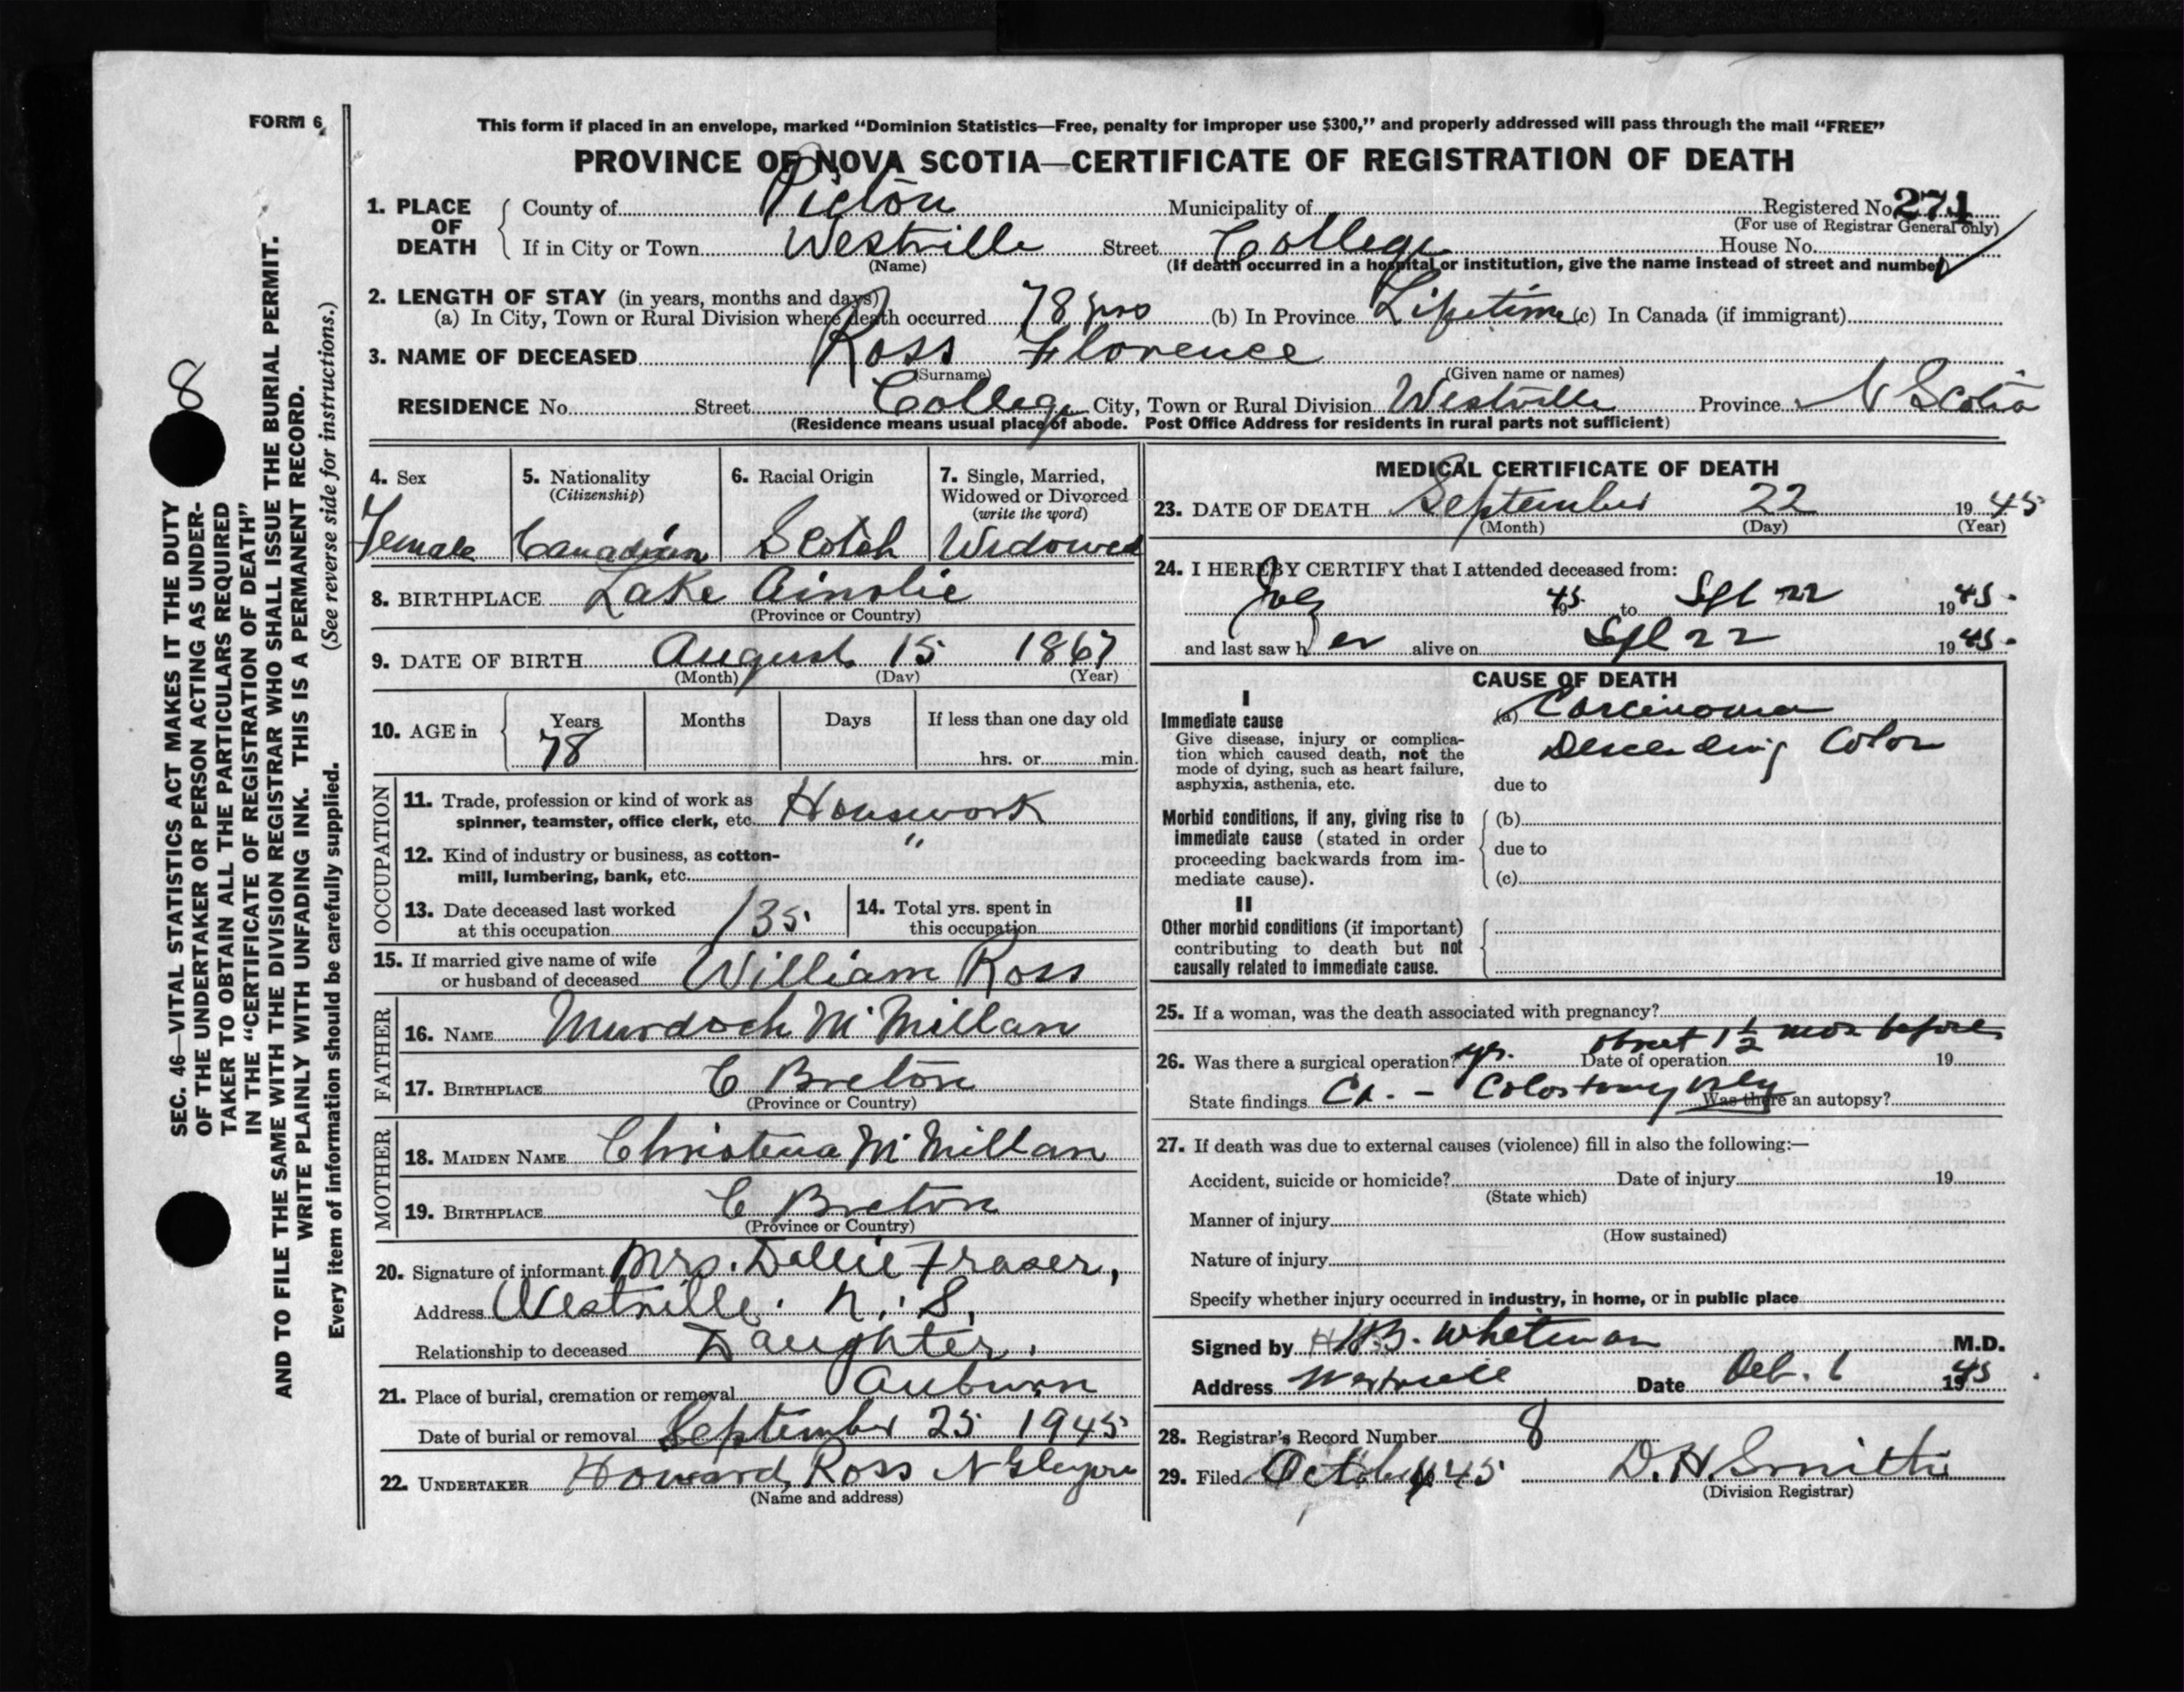 FORM 6
This form if placed in an envelope, marked “Dominion Statistics—Free, penalty for improper use $300,” and properly addressed will pass through the mail “FREE”
PROVINCE OF NOVA SCOTIA—CERTIFICATE OF REGISTRATION OF DEATH
1. PLACE OF DEATH { County of Pictou Municipality of Registered No. 271
(For use of Registrar General only)
If in City or Town Westville Street College House No.
(Name) (If death occurred in a hospital or institution, give the name instead of street and number)
2. LENGTH OF STAY (in years, months and days)
(a) In City, Town or Rural Division where death occurred 78 yrs (b) In Province Lifetime (c) In Canada (if immigrant)
3. NAME OF DECEASED Ross Florence
(Surname) (Given name or names)
RESIDENCE No. Street College City, Town or Rural Division Westville Province N Scotia
(Residence means usual place of abode. Post Office Address for residents in rural parts not sufficient)
4. Sex 5. Nationality 6. Racial Origin 7. Single, Married,
(Citizenship) Widowed or Divorced
(write the word)
Female Canadian Scotch Widowed
8. BIRTHPLACE Lake Ainslie
(Province or Country)
9. DATE OF BIRTH August 15 1867
(Month) (Day) (Year)
10. AGE in { Years Months Days If less than one day old
78 hrs. or min.
OCCUPATION
11. Trade, profession or kind of work as
spinner, teamster, office clerk, etc. Housework
12. Kind of industry or business, as cotton- "
mill, lumbering, bank, etc.
13. Date deceased last worked 14. Total yrs. spent in
at this occupation /35. this occupation
15. If married give name of wife
or husband of deceased William Ross
FATHER
16. NAME Murdoch McMillan
17. BIRTHPLACE C Breton
(Province or Country)
MOTHER
18. MAIDEN NAME Christena McMillan
19. BIRTHPLACE C Breton
(Province or Country)
20. Signature of informant Mrs. Dollie Fraser,
Address Westville. N. S.
Relationship to deceased Daughter.
21. Place of burial, cremation or removal Auburn
Date of burial or removal September 25 1945
22. UNDERTAKER Howard Ross N Glasgow
(Name and address)
MEDICAL CERTIFICATE OF DEATH
23. DATE OF DEATH September 22 19 45
(Month) (Day) (Year)
24. I HEREBY CERTIFY that I attended deceased from:
19 45 to Sept 22 19 45.
and last saw her alive on Sept 22 19 45.
CAUSE OF DEATH
I
Immediate cause (a) Carcinoma
Give disease, injury or complica- Descending Colon
tion which caused death, not the
mode of dying, such as heart failure,
asphyxia, asthenia, etc. due to
Morbid conditions, if any, giving rise to (b)
immediate cause (stated in order due to
proceeding backwards from im-
mediate cause). (c)
II
Other morbid conditions (if important)
contributing to death but not
causally related to immediate cause.
25. If a woman, was the death associated with pregnancy?
about 1½ mos before
26. Was there a surgical operation? yes. Date of operation 19
State findings Ca. - Colostomy only Was there an autopsy?
27. If death was due to external causes (violence) fill in also the following:—
Accident, suicide or homicide? Date of injury 19
(State which)
Manner of injury
(How sustained)
Nature of injury
Specify whether injury occurred in industry, in home, or in public place
Signed by H B. Whitman M.D.
Address Westville Date Oct. 1 1945
28. Registrar's Record Number 8
29. Filed October 45 D. H. Smith
(Division Registrar)
8
SEC. 46—VITAL STATISTICS ACT MAKES IT THE DUTY
OF THE UNDERTAKER OR PERSON ACTING AS UNDER-
TAKER TO OBTAIN ALL THE PARTICULARS REQUIRED
IN THE “CERTIFICATE OF REGISTRATION OF DEATH”
AND TO FILE THE SAME WITH THE DIVISION REGISTRAR WHO SHALL ISSUE THE BURIAL PERMIT.
WRITE PLAINLY WITH UNFADING INK. THIS IS A PERMANENT RECORD.
Every item of information should be carefully supplied. (See reverse side for instructions.)